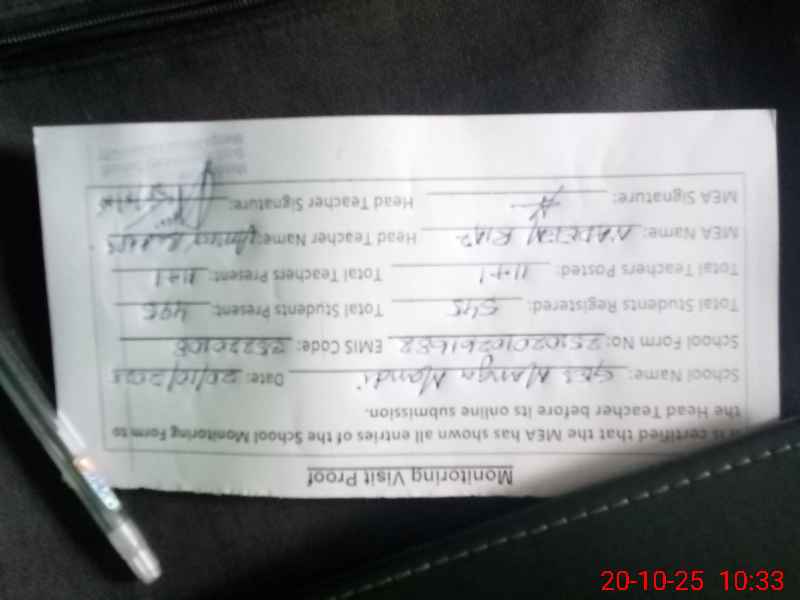 Monitoring Visit Proof
It is certified that the MEA has shown all entries of the School Monitoring Form to
the Head Teacher before its online submission.
School Name: GES Manga Mandi Date: 20/10/2025
School Form No: EMIS Code: 35220108
Total Students Registered: 545 Total Students Present: 495
Total Teachers Posted: 11+1 Total Teachers Present: 11+1
MEA Name: NADEEM RIAZ Head Teacher Name:
MEA Signature: Head Teacher Signature:
20-10-25 10:33